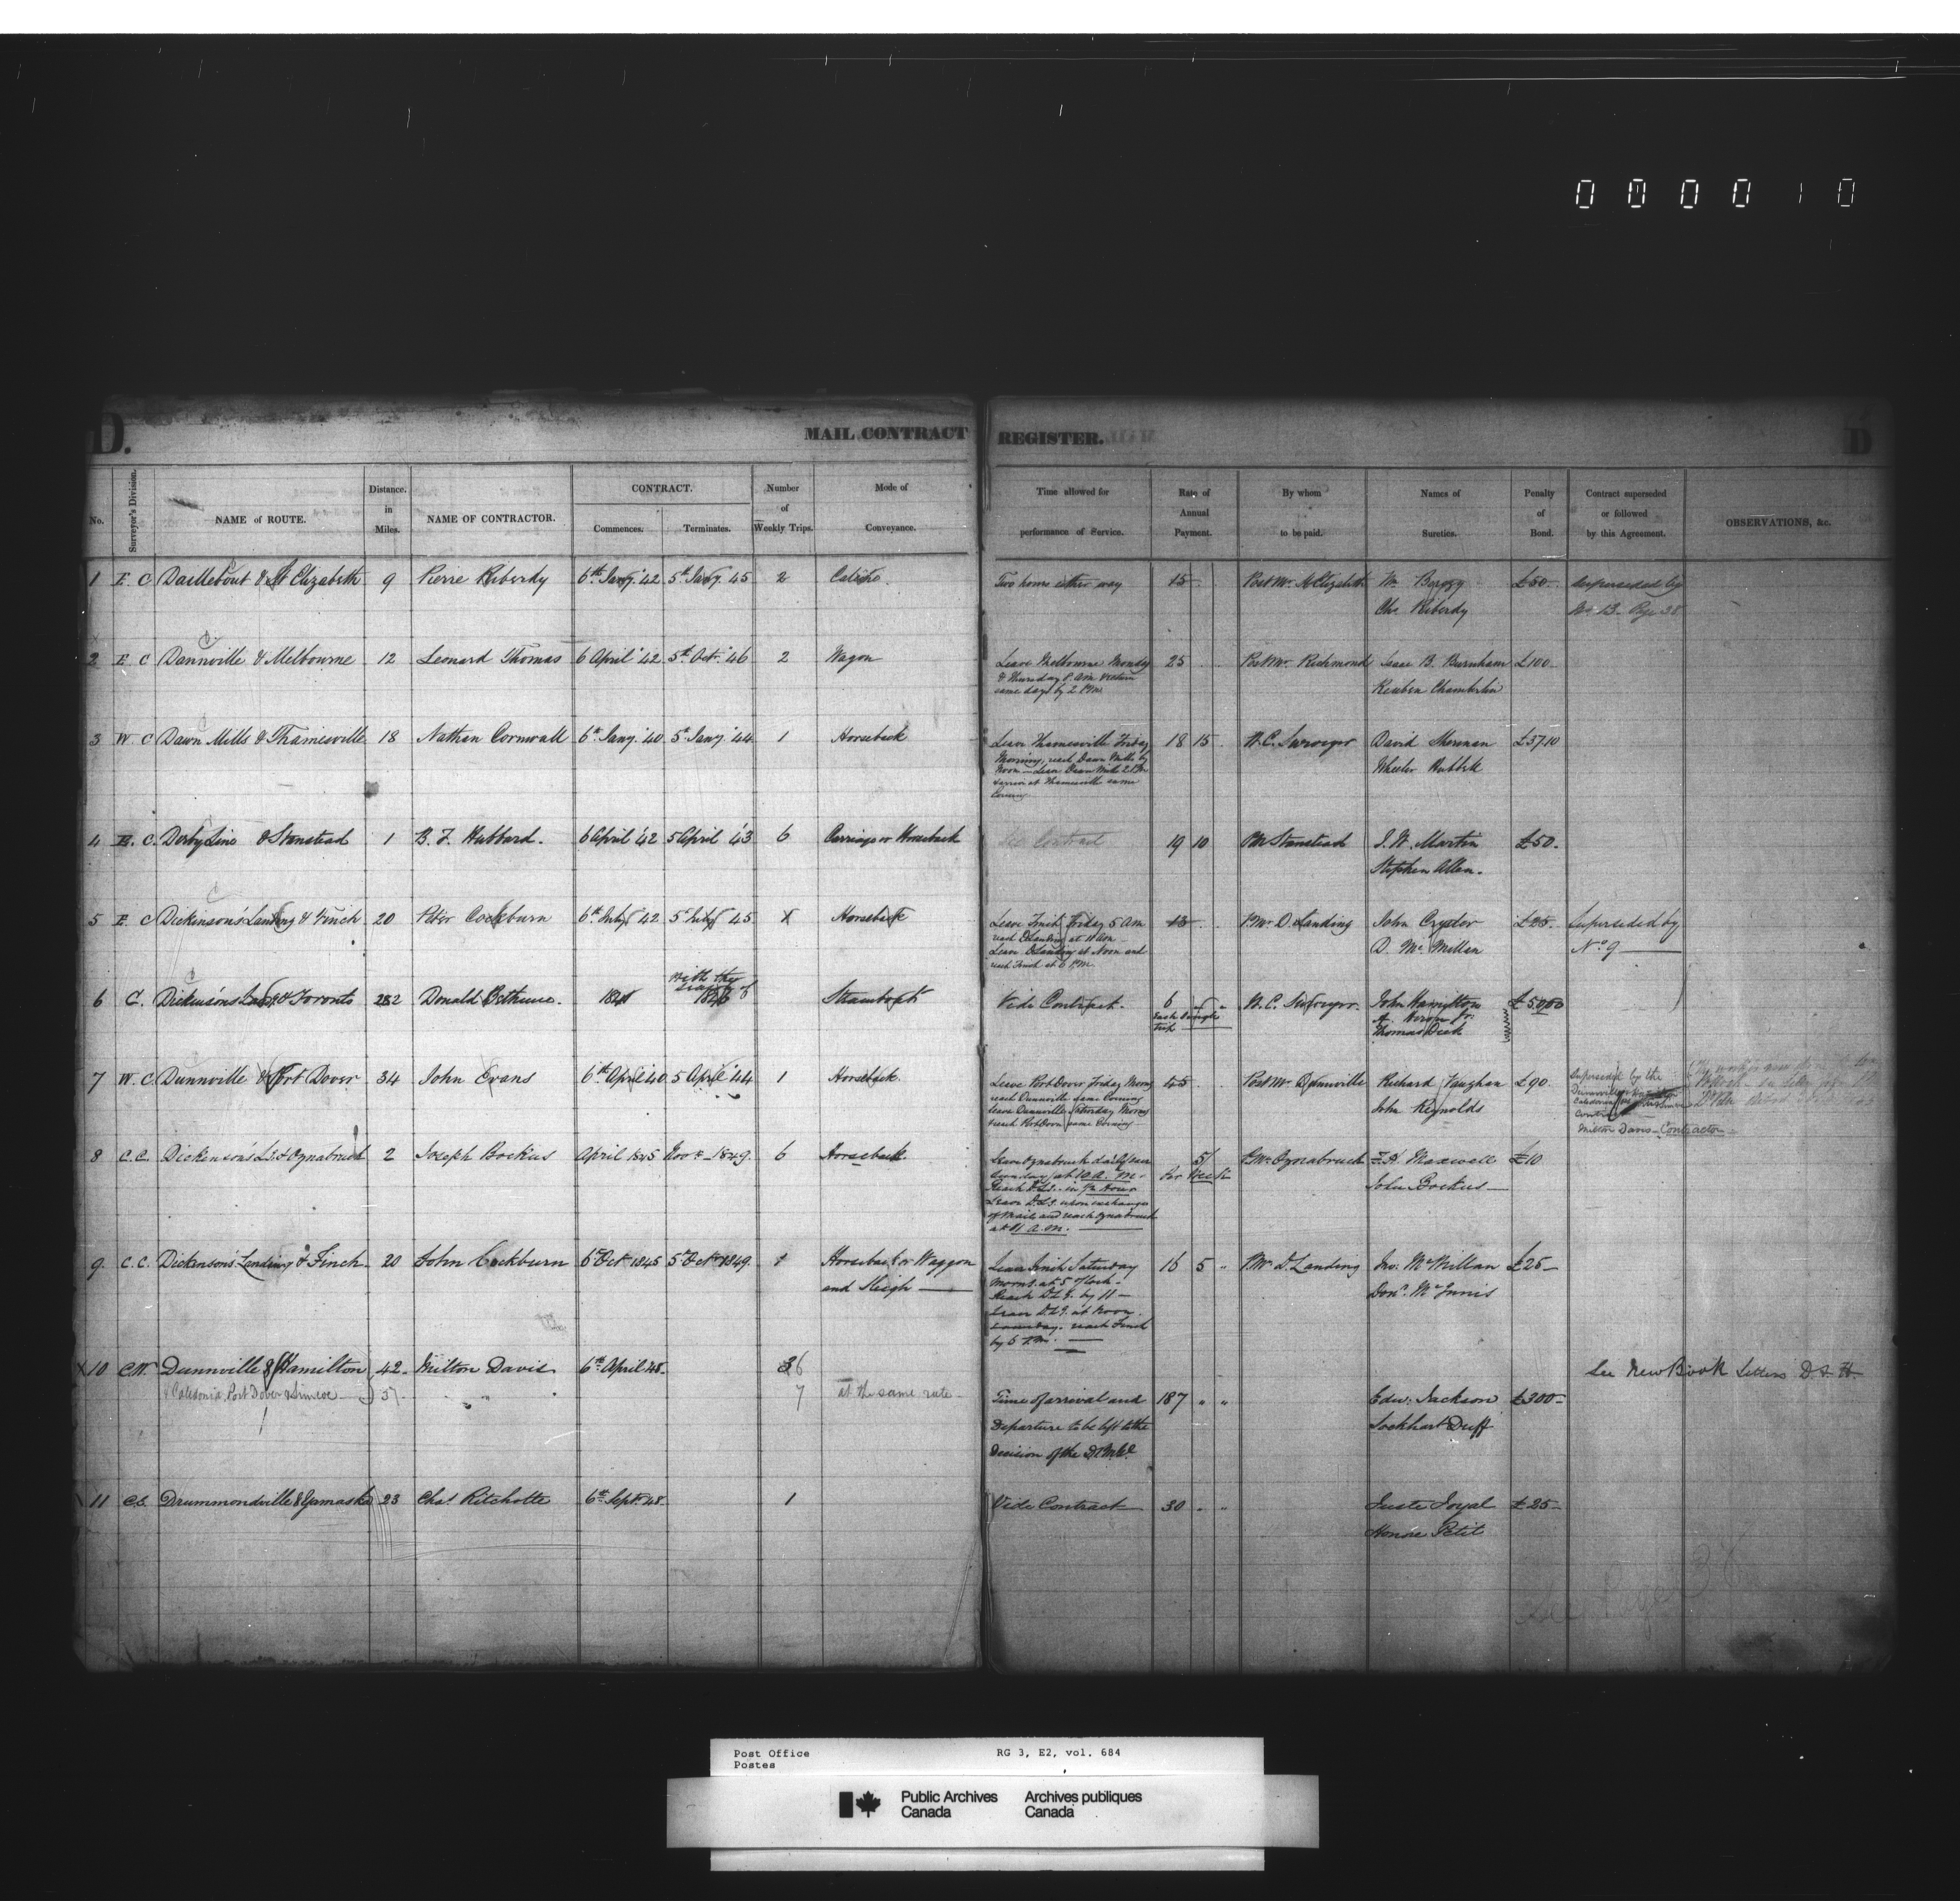 000010
D. MAIL CONTRACT REGISTER. D
No. | Surveyor's Division. | NAME of ROUTE. | Distance. in Miles. | NAME OF CONTRACTOR. | CONTRACT. Commences. | Terminates. | Number of Weekly Trips. | Mode of Conveyance. | Time allowed for performance of Service. | Rate of Annual Payment. | By whom to be paid. | Names of Sureties. | Penalty of Bond. | Contract superseded or followed by this Agreement. | OBSERVATIONS, &c.
1 E C Daillebout & St Elizabeth 9 Pierre Riberdy 6th Jany '42 5th Jany 45 2 Caliche. Two hours either way 15 Post Mr. St Elizabeth £50 Superseded by
Chs Riberdy No 13 Page 38
2 E C Dannville & Melbourne 12 Leonard Thomas 6 April '42 5th Oct. '46 2 Wagon Leave Melbourne Monday 25 Post Mr. Richmond Isaac B. Burnham £100
& Thursday 8 am return
same days by 2 P.M. Reuben Chamberlin
3 W. C Dawn Mills & Thamesville 18 Nathan Cornwall 6th Jany '40 5th Jany '44 1 Horseback Leave Thamesville Friday 18 15 N.C. Surveyor David Sherman £37.10
Morning, reach Dawn Mills by Wheeler Hubbell
Noon - Leave Dawn Mills 2 P.M.
& arrive at Thamesville same
Evening
4 E. C. Derby Line & Stanstead 1 B. F. Hubbard. 6 April '42 5 April '43 6 Carriage or Horseback See Contract 19 10 PM Stanstead I. W. Martin £50.
Stephen Allen.
5 E C Dickinson's Landing & Finch 20 Peter Cockburn 6th July 42 5th July 45 X Horseback Leave Finch Friday 5 Am 13 P.Mr D. Landing John Cryder £25 Superseded by
reach D Landing at 11 Am D. McMillan No. 9
Leave D Landing at Noon and
reach Finch at 6 P.M.
6 C. Dickinsons Landg & Toronto 282 Donald Bethune. 184 with the 184 Steamboat Vide Contract. 6 N. C. Surveyor. John Hamilton £5000
Each Single Trip Thomas Dick
7 W. C. Dunnville & Port Dover 34 John Evans 6th April 40 5 April '44 1 Horseback. Leave Port Dover Friday Morng 45 Post Mr Dunnville Richard Vaughan £90 Superseded by the
reach Dunnville same Evening John Reynolds
leave Dunnville Saturday Morng
reach Port Dover same Evening Milton Davis - Contractor
8 C.C. Dickinson's L. & Oznabruck 2 Joseph Bockus April 1845 1849. 6 Horseback. Leave Oznabruck 5/ P.Mr Oznabruck Maxwell £10
at 10 A.M. per Week John Bockus
Reach D.L. in 1/2 Hour
Leave D.L. upon exchange
of Mail and reach Oznabruck
at 11 a.m.
9 C.C. Dickinson's Landing & Finch 20 John Cockburn 6th Oct 1845 5th Oct 1849. 1 Horseback or Waggon Leave Finch Saturday 16 5 " P.Mr D. Landing Jno: McMillan £25
and Sleigh Morng. at 5 o'clock - Dond. McInnis
Reach D.L.g. by 11 -
Leave D.L.g. at Noon.
reach Finch
by 5 P.M.
X 10 C.W. Dunnville & Hamilton 42 Milton Davis 6th April 48. 6 See New Book Letters D & H
& Caledonia Port Dover & Simcoe 51 " " 7 at the same rate - Time of arrival and 187 " " Edw. Jackson £300
Departure to be left to the Lockhart Duff
Decision of the
11 Drummondville & Yamaska 23 Chas Ritchotte 6th Sept 48. 1 Vide Contract 30 " " Juste Joyal £25
Honore Petit
See Page 38
Post Office
Postes
RG 3, E2, vol. 684
Public Archives
Canada
Archives publiques
Canada